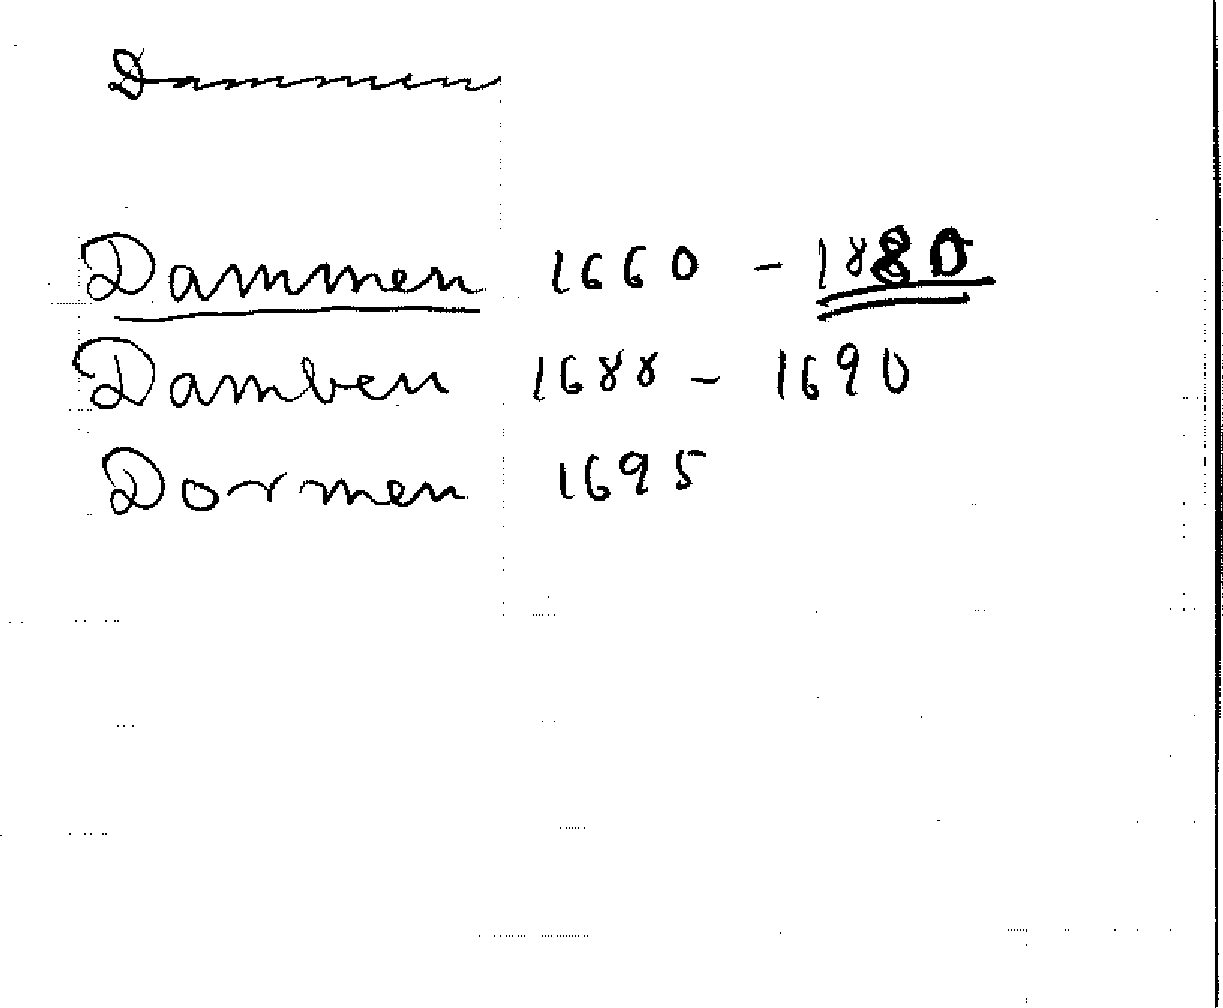 Dammen
Dammen 1660 - 1880
Damben 1688 - 1690
Dormen 1695